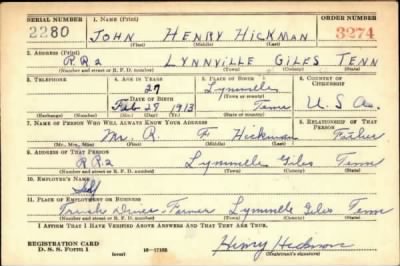 SERIAL NUMBER 1. NAME (Print) ORDER NUMBER
2280 JOHN HENRY HICKMAN 3274
(First) (Middle) (Last)
2. ADDRESS (Print)
R R 2 LYNNVILLE GILES TENN
(Number and street or R. F. D. number) (Town) (County) (State)
3. TELEPHONE 4. AGE IN YEARS 5. PLACE OF BIRTH 6. COUNTRY OF CITIZENSHIP
27 Lynnville
DATE OF BIRTH (Town or county)
Feb 27 1913 Tenn U. S. A.
(Exchange) (Number) (Mo.) (Day) (Yr.) (State or country)
7. NAME OF PERSON WHO WILL ALWAYS KNOW YOUR ADDRESS 8. RELATIONSHIP OF THAT PERSON
Mr. R. F Hickman Father
(Mr., Mrs., Miss) (First) (Middle) (Last)
9. ADDRESS OF THAT PERSON
R R 2 Lynnville Giles Tenn
(Number and street or R. F. D. number) (Town) (County) (State)
10. EMPLOYER'S NAME
Self
11. PLACE OF EMPLOYMENT OR BUSINESS
Farmer Lynnville Giles Tenn
(Number and street or R. F. D. number) (Town) (County) (State)
I AFFIRM THAT I HAVE VERIFIED ABOVE ANSWERS AND THAT THEY ARE TRUE.
REGISTRATION CARD
D. S. S. Form 1 (over) Henry Hickman
(Registrant's signature)